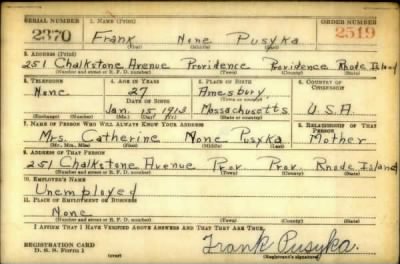 SERIAL NUMBER 1. NAME (Print) ORDER NUMBER
2370 Frank None Pusyka 2519
(First) (Middle) (Last)
2. ADDRESS (Print)
251 Chalkstone Avenue Providence Providence Rhode Island
(Number and street or R. F. D. number) (Town) (County) (State)
3. TELEPHONE 4. AGE IN YEARS 5. PLACE OF BIRTH 6. COUNTRY OF CITIZENSHIP
None 27 Amesbury,
DATE OF BIRTH (Town or county)
Jan. 15 1913 Massachusetts U.S.A.
(Exchange) (Number) (Mo.) (Day) (Yr.) (State or country)
7. NAME OF PERSON WHO WILL ALWAYS KNOW YOUR ADDRESS 8. RELATIONSHIP OF THAT PERSON
Mrs. Catherine None Pusyka Mother
(Mr., Mrs., Miss) (First) (Middle) (Last)
9. ADDRESS OF THAT PERSON
251 Chalkstone Avenue Prov. Prov. Rhode Island
(Number and street or R. F. D. number) (Town) (County) (State)
10. EMPLOYER'S NAME
Unemployed
11. PLACE OF EMPLOYMENT OR BUSINESS
None
(Number and street or R. F. D. number) (Town) (County) (State)
I AFFIRM THAT I HAVE VERIFIED ABOVE ANSWERS AND THAT THEY ARE TRUE.
REGISTRATION CARD
D. S. S. Form 1 (over) Frank Pusyka.
(Registrant's signature)